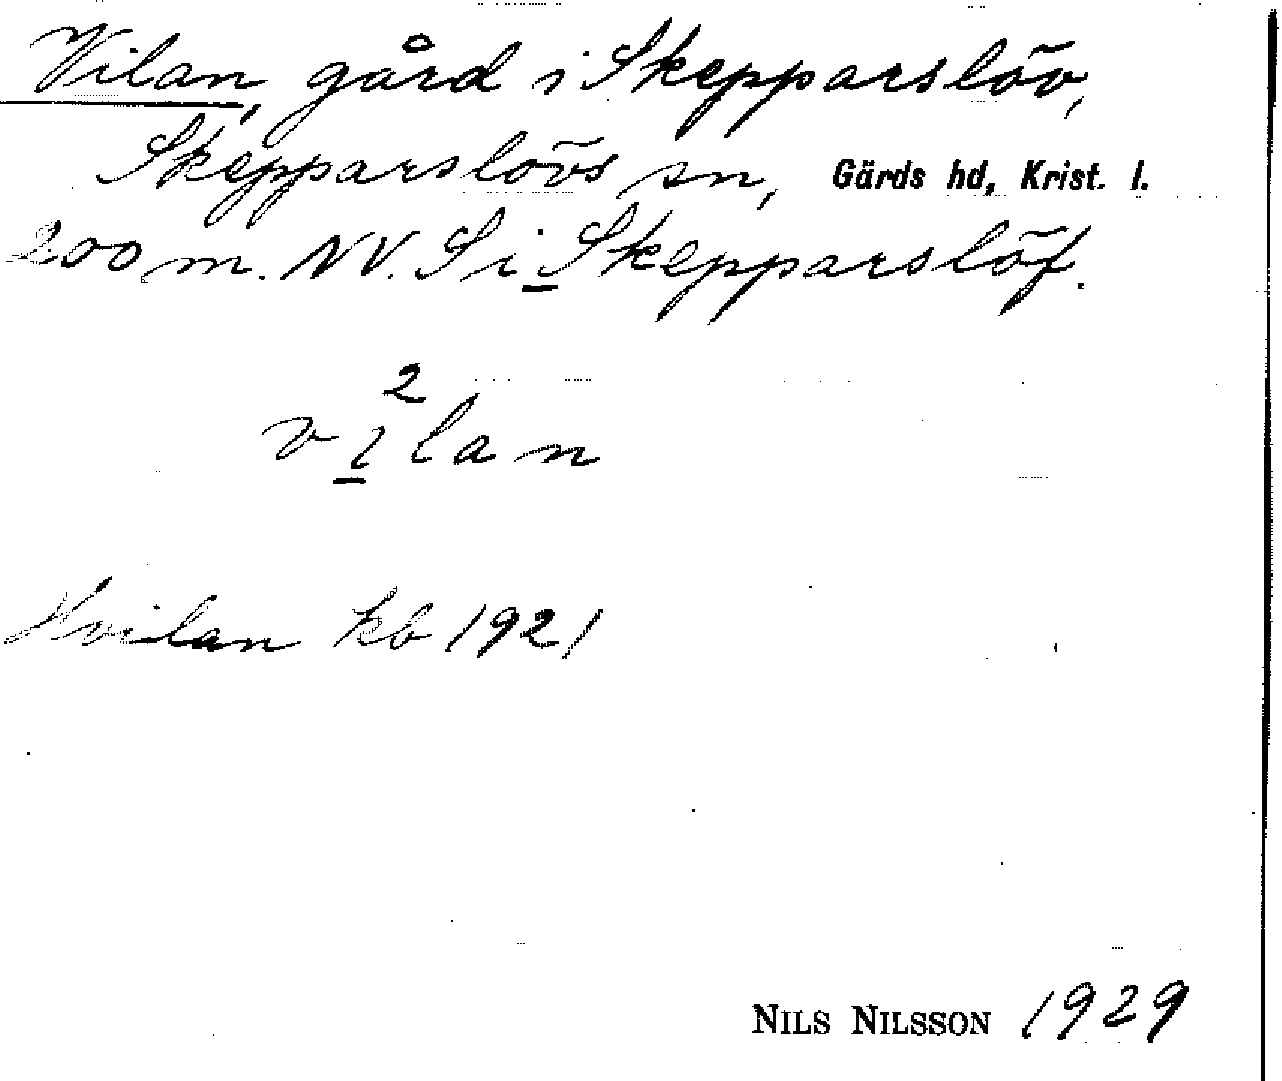 Vilan, gård i Skepparslöv,
Skepparslövs sn, Gärds hd, Krist. l.
200 m. NV. S i Skepparslöf.
2
vilan
Hvilan kb 1921
NILS NILSSON 1929